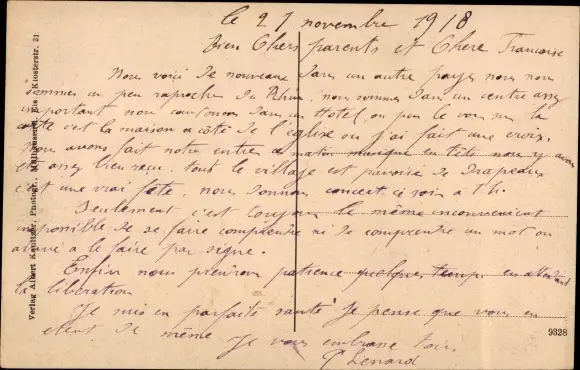 le 21 novembre 1918
Bien Chers parents et Chere Francoise
Nous voici de nouveaux dans un autre pays nous nous
sommes un peu raproche du Rhin, nous sommes dans un centre assez
important nous dans un Hotel, on peu le voir sur la
carte c'est la maison a côté de l'église ou j'ai fait une croix.
Nous avons fait notre entree ce matin musique en tête nous y avons
été assez bien reçu, tout le village est pavoise de drapeaux
c'est une vrai fête, nous donnons concert ce soir a h.
Seulement c'est toujours le même inconvenient
impossible de se faire comprendre ni de comprendre un mot on
arrive a le faire par signe.
Enfin nous prenons patience quelque temps en attendant
la libération
Je suis en parfaite santé je pense que vous en
etent de même Je vous embrasse tous.
Lenard
Verlag Albert Photogr., Mülhausen i. Els., Klosterstr. 21
9328